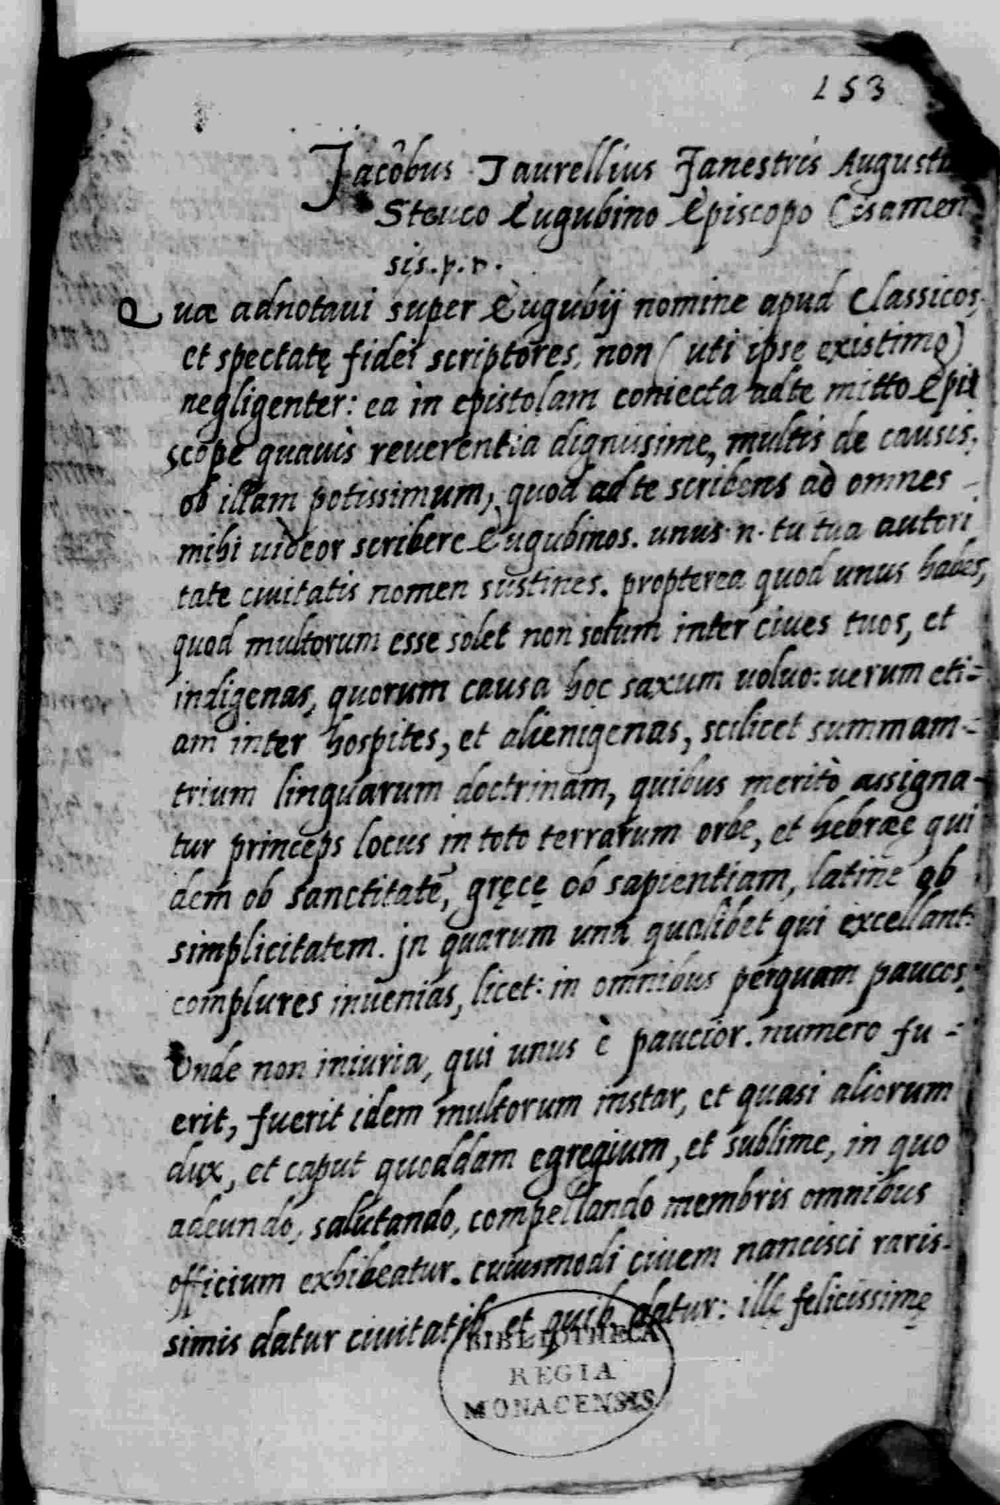 153
Jacôbus Taurellius Fanestris Augusti
Steuco Eugubino Episcopo Cisamen
sis. p. D.
Quæ adnotaui super Eugubij nomine apud Classicos,
et spectatę fidei scriptores, non (uti ipse existimo)
negligenter: ea in epistolam coniecta ad te mitto Epi
scope quauis reuerentia dignissime, multis de causis,
ob illam potissimum, quod ad te scribens ad omnes
mihi uideor scribere Eugubinos. unus. n. tu tua autori
tate ciuitatis nomen sustines. propterea quod unus habes,
quod multorum esse solet non solum inter ciues tuos, et
indigenas, quorum causa hoc saxum uoluo: uerum eti=
am inter hospites, et alienigenas, scilicet summam=
trium linguarum doctrinam, quibus meritò assigna-
tur princeps locus in toto terrarum orbe, et hebræę qui
dem ob sanctitatē, gręcę ob sapientiam, latinę ob
simplicitatem. jn quarum una qualibet qui excellant
complures inuenias, licet: in omnibus perquam paucos,
Vnde non iniuria, qui unus è paucior. numero fu=
erit, fuerit idem multorum instar, et quasi aliorum
dux, et caput quoddam egregium, et sublime, in quo
adeundo, salutando, compellando membris omnibus
officium exhibeatur. cuiusmodi ciuem nancisci raris-
simis datur ciuitatib. et quib. datur: illę felicissimę
BIBLIOTHECA
REGIA
MONACENSIS